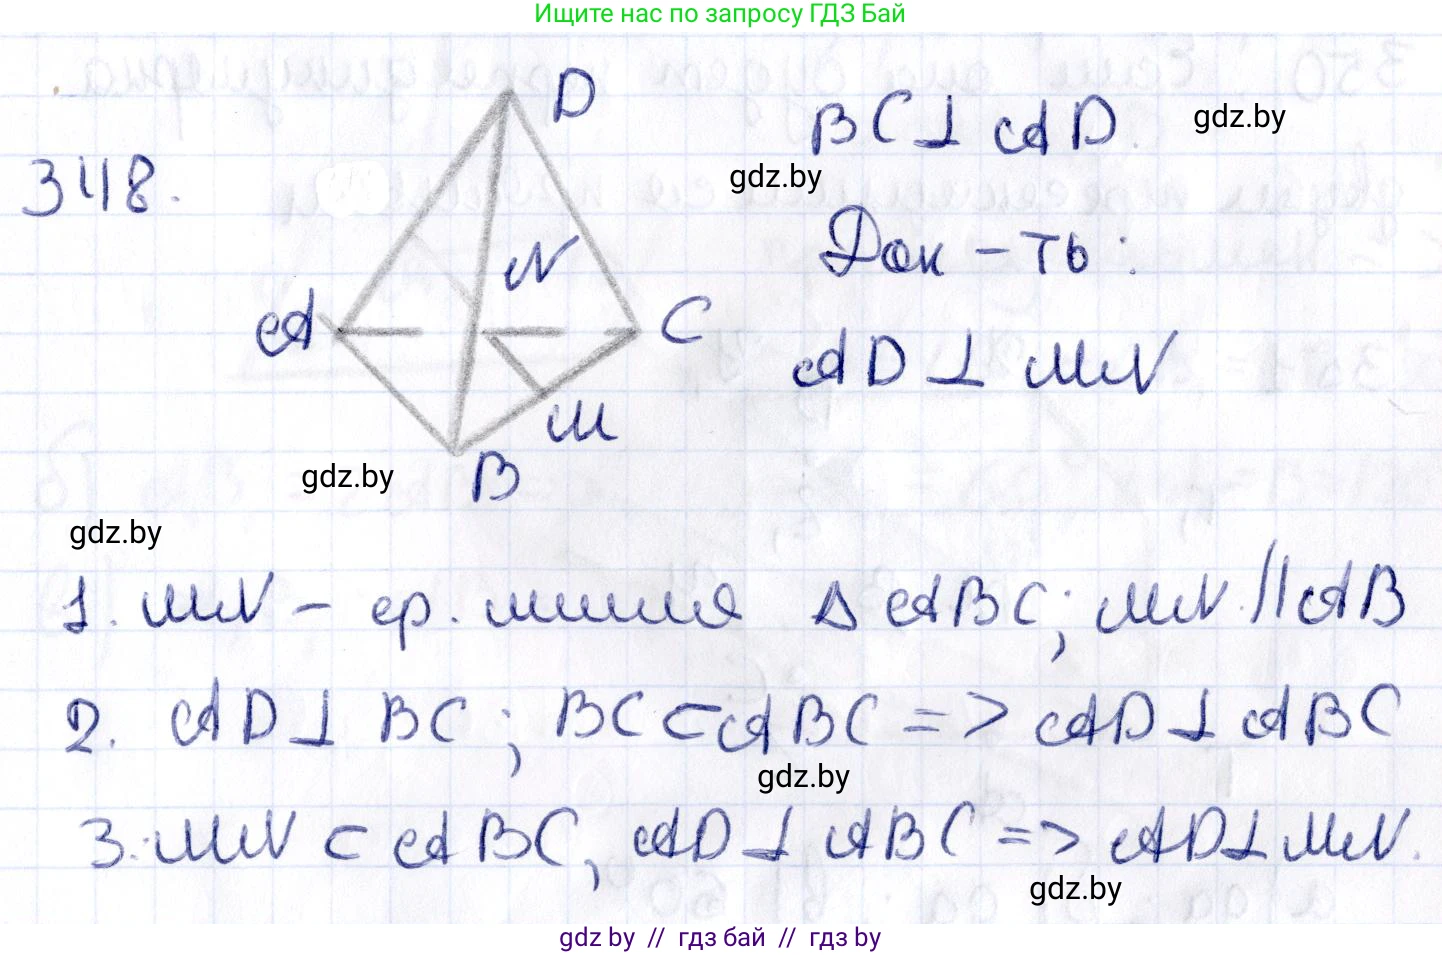 Ищите нас по запросу ГДЗ Бай
348.
D
N
A
C
M
B
BC⊥AD
gdz.by
gdz.by
Док-ть:
AD⊥MN
gdz.by
gdz.by
1. MN – ср. линия ΔABC; MN∥AB
2. AD⊥BC; BC⊂ABC => AD⊥ABC
gdz.by
3. MN⊂ABC, AD⊥ABC => AD⊥MN.
gdz.by
gdz by // гдз бай // гдз by